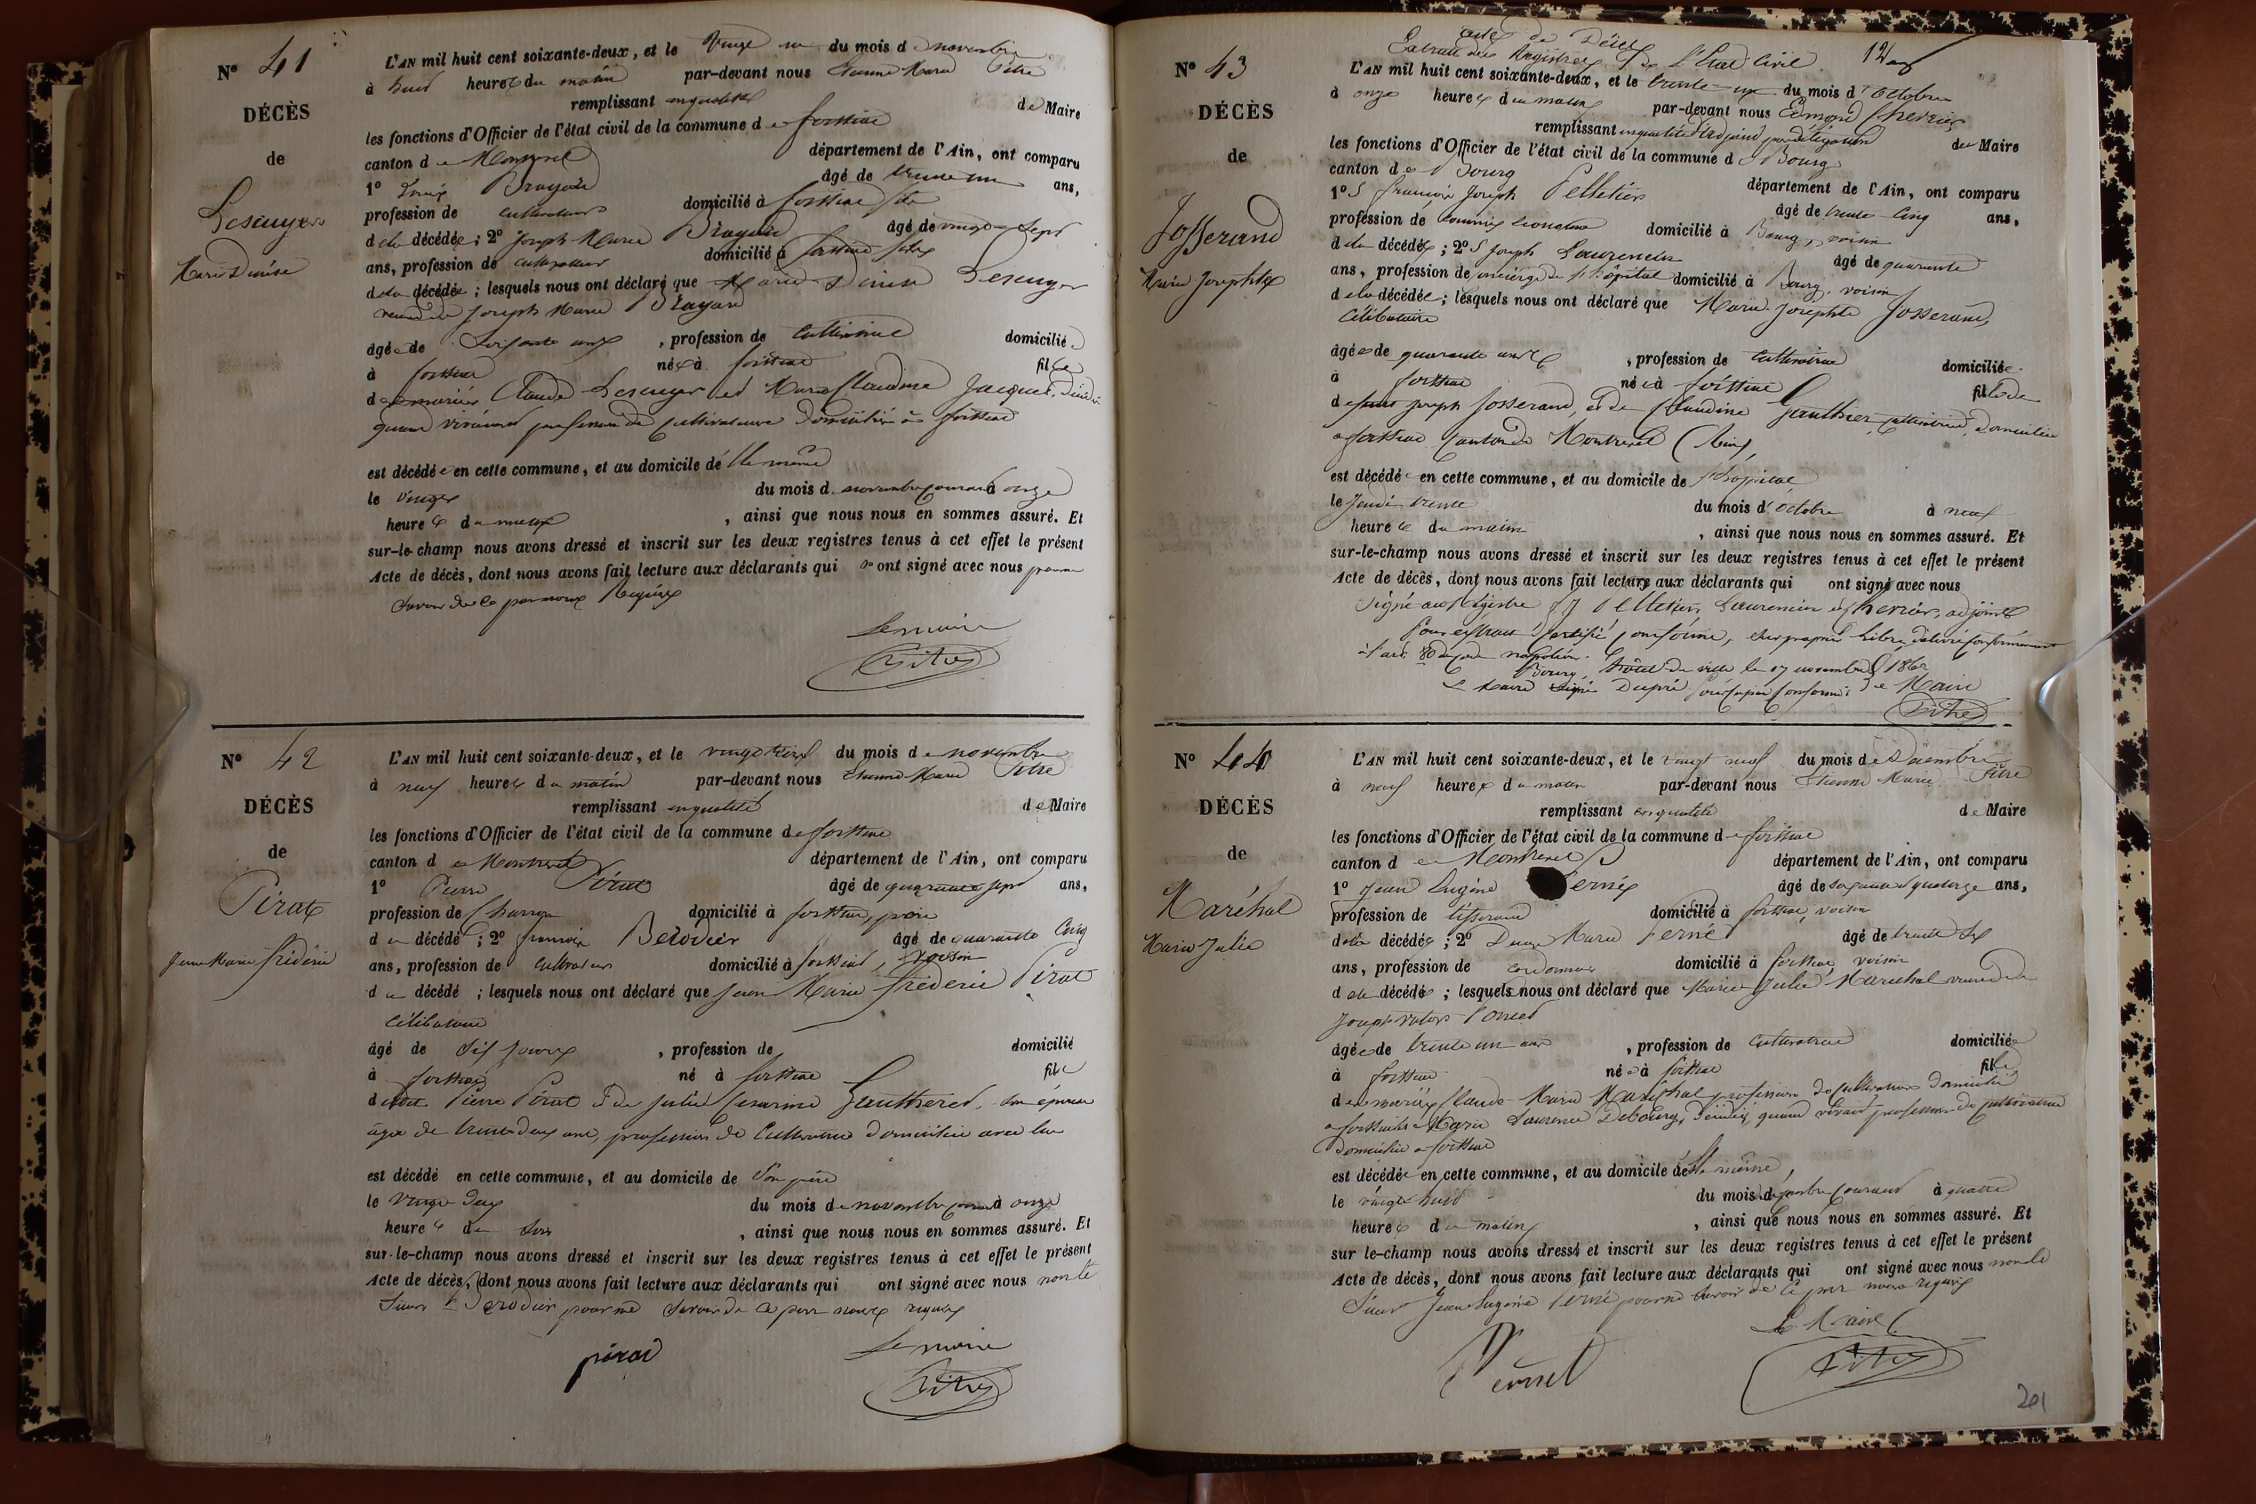 N° 41
DÉCÈS
de
Lescuyer
Marie Denise
L'AN mil huit cent soixante-deux, et le vingt un du mois de novembre
à huit heures du matin par-devant nous Etienne Marie Pitre
remplissant en qualité de Maire
les fonctions d'Officier de l'état civil de la commune de foissiat
canton de Montrevel département de l'Ain, ont comparu
1° Brayard âgé de trente un ans,
profession de cultivateur domicilié à foissiat fils
de la décédée ; 2° Joseph Marie Brayard âgé de vingt sept
ans, profession de cultivateur domicilié à foissiat fils
de la décédée ; lesquels nous ont déclaré que Marie Denise Lescuyer
veuve de Joseph Marie Brayard
âgée de soixante ans , profession de cultivatrice domiciliée
à foissiat née à foissiat fille
de mariés Claude Lescuyer et Marie Claudine Jacquet, décédés
quand vivaient profession de cultivateurs domiciliés à foissiat
est décédée en cette commune, et au domicile d'elle même
le vingt du mois de novembre courant à onze
heures du matin , ainsi que nous nous en sommes assuré. Et
sur-le-champ nous avons dressé et inscrit sur les deux registres tenus à cet effet le présent
Acte de décès, dont nous avons fait lecture aux déclarants qui ont signé avec nous pour ne
savoir de ce par nous requis
Le maire
Pitre
N° 42
DÉCÈS
de
Pirat
Jean Marie fréderic
L'AN mil huit cent soixante-deux, et le vingt trois du mois de novembre
à neuf heures du matin par-devant nous Etienne Marie Pitre
remplissant en qualité de Maire
les fonctions d'Officier de l'état civil de la commune de foissiat
canton de Montrevel département de l'Ain, ont comparu
1° Pierre Pirat âgé de quarante sept ans,
profession de Charron domicilié à foissiat, père
du décédé ; 2° françois Berodier âgé de quarante cinq
ans, profession de cultivateur domicilié à foissiat, voisin
du décédé ; lesquels nous ont déclaré que Jean Marie fréderic Pirat
célibataire
âgé de dix jours , profession de domicilié
à foissiat né à foissiat fils
dudit Pierre Pirat et de Julie Cesarine Gautheret, son épouse
âgée de trente deux ans, profession de Cultivatrice domiciliée avec lui
est décédé en cette commune, et au domicile de son père
le vingt deux du mois de novembre courant à onze
heures du soir , ainsi que nous nous en sommes assuré. Et
sur-le-champ nous avons dressé et inscrit sur les deux registres tenus à cet effet le présent
Acte de décès, dont nous avons fait lecture aux déclarants qui ont signé avec nous non le
sieur Berodier pour ne savoir de ce par nous requis
pirat
Le maire
Pitre
actes de Décès
Extrait des Registres de l'Etat Civil
N° 43
DÉCÈS
de
Josserand
Marie Josephte
L'AN mil huit cent soixante-deux, et le trente un du mois d'octobre
à onze heures du matin par-devant nous Edmond Chevrier
remplissant en qualité d'adjoint par délégation du Maire
les fonctions d'Officier de l'état civil de la commune de Bourg
canton de Bourg département de l'Ain, ont comparu
1° S françois Joseph Pelletier âgé de trente-cinq ans,
profession de commis économe domicilié à Bourg, voisin
de la décédée ; 2° S Joseph Laurencin âgé de quarante
ans, profession de concierge de l'hôpital domicilié à Bourg, voisin
de la décédée ; lesquels nous ont déclaré que Marie Josephte Josserand,
Célibataire
âgée de quarante , profession de Cultivatrice domiciliée
à foissiat née à foissiat fille de
defunt Joseph Josserand, et de Claudine Gauthier, cultivatrice, domiciliée
à foissiat canton de Montrevel (Ain)
est décédée en cette commune, et au domicile de l'hôpital
le Jeudi trente du mois d'octobre à neuf
heures du matin , ainsi que nous nous en sommes assuré. Et
sur-le-champ nous avons dressé et inscrit sur les deux registres tenus à cet effet le présent
Acte de décès, dont nous avons fait lecture aux déclarants qui ont signé avec nous
Signé au Registre f J Pelletier, Laurencin et Chevrier, adjoint
Pour extrait certifié conforme, sur papier libre, délivré conformément
à l'art. 80 du code napoléon.
Bourg, hôtel de ville le 17 novembre 1862
Le Maire signé Dupré Le Maire
Pitre
N° 44
DÉCÈS
de
Maréchal
Marie Julie
L'AN mil huit cent soixante-deux, et le vingt neuf du mois de Décembre
à neuf heures du matin par-devant nous Etienne Marie Pitre
remplissant en qualité de Maire
les fonctions d'Officier de l'état civil de la commune de foissiat
canton de Montrevel département de l'Ain, ont comparu
1° Jean Eugène Perné âgé de soixante quatorze ans,
profession de tisserand domicilié à foissiat, voisin
de la décédée ; 2° Marie Perné âgé de trente six
ans, profession de cordonnier domicilié à foissiat, voisin
de la décédée ; lesquels nous ont déclaré que Marie Julie Maréchal veuve de
Joseph Poncet
âgée de trente un ans , profession de Cultivatrice domiciliée
à foissiat née à foissiat fille
de mariés Claude Marie Maréchal profession de cultivateur domicilié
à foissiat et Marie Laurence Debourg, décédée, quand vivait profession de cultivatrice
domiciliée à foissiat
est décédée en cette commune, et au domicile d'elle même,
le vingt huit du mois de décembre courant à quatre
heures du matin , ainsi que nous nous en sommes assuré. Et
sur le-champ nous avons dressé et inscrit sur les deux registres tenus à cet effet le présent
Acte de décès, dont nous avons fait lecture aux déclarants qui ont signé avec nous non le
sieur Jean Eugène Perné pour ne savoir de ce par nous requis
Le Maire
Pitre
201